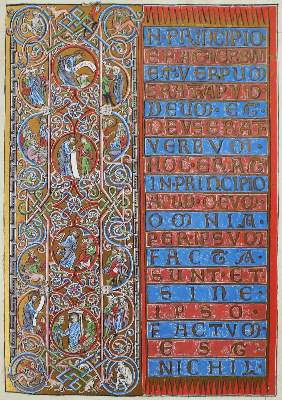 N PRINCIPIO
ERAT VERBU
ET VERPUM
ERAT APUD
DEUM · ET
DEUS ERAT
VERBUM ·
HOC ERAT
IN PRINCIPIO
APUD DEUM ·
OMNIA ·
PER IPSUM
FACTA ·
SUNT ET
SINE ·
IPSO ·
FACTUM
EST
NICHIL